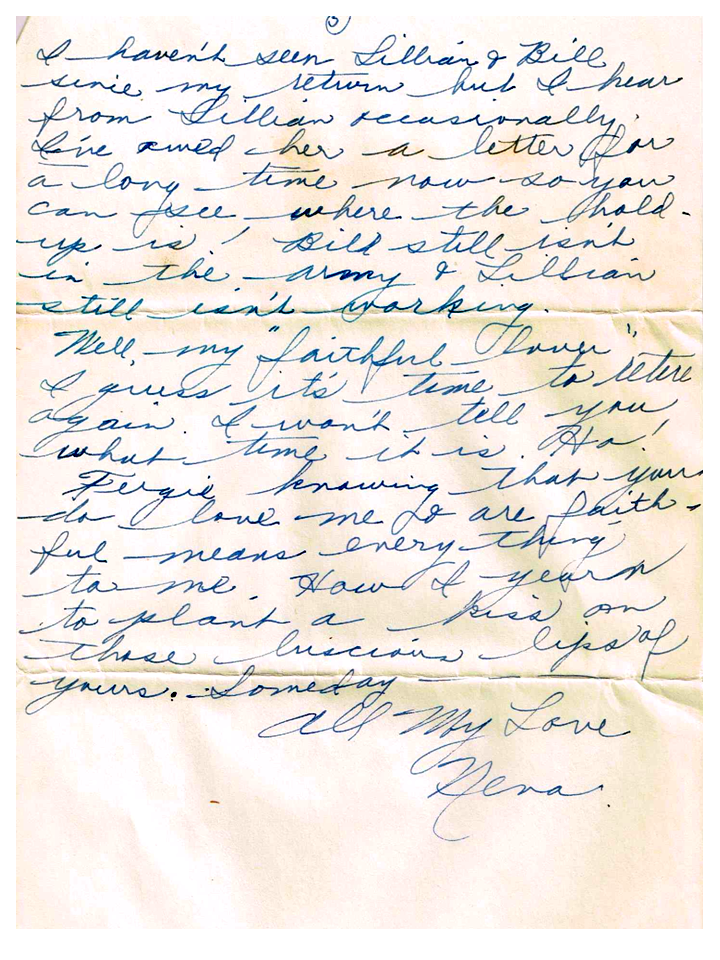 (5)
I haven't seen Lillian & Bill
sinie my return but I hear
from Lillian occasionally.
I've owed her a letter for
a long time now so you
can see where the hold-
up is! Bill still isn't
in the army & Lillian
still isn't working.
Well, my "faithful lover",
I guess it's time to retire
again. I won't tell you
what time it is. Ha!
Fergie knowing that you
do love me & are faith-
ful means everything
to me. How I yearn
to plant a kiss on
those luscious lips of
yours. Someday — — —
All My Love
Neva.